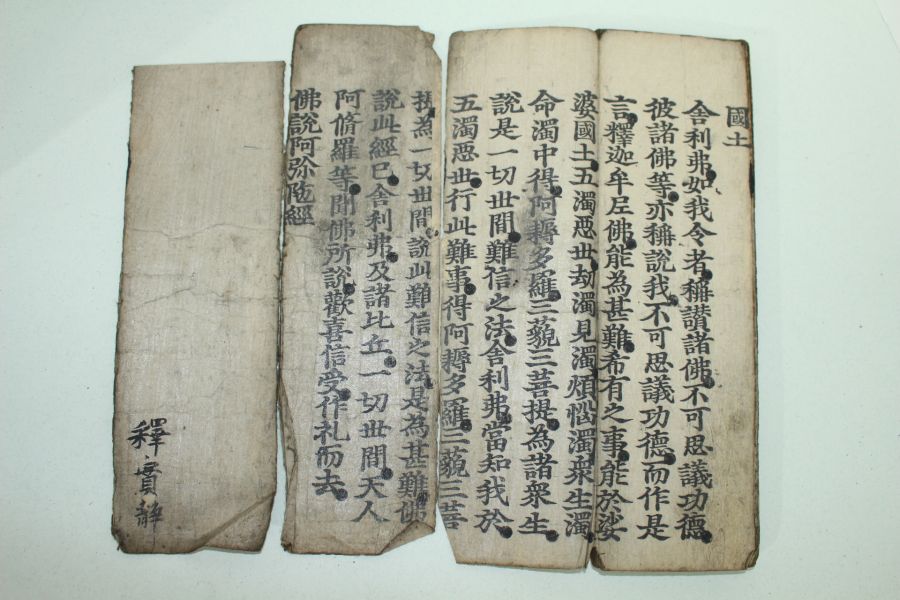 國土
舍利弗如我今者稱讃諸佛不可思議功德
彼諸佛等亦稱說我不可思議功德而作是
言釋迦牟尼佛能為甚難希有之事能於娑
婆國土五濁悪世劫濁見濁煩惱濁衆生濁
命濁中得阿耨多羅三藐三菩提為諸衆生
說是一切世間難信之法舍利弗當知我於
五濁悪世行此難事得阿耨多羅三藐三菩
提為一切世間說此難信之法是為甚難佛
說此經已舍利弗及諸比丘一切世間天人
阿脩羅等聞佛所說歡喜信受作礼而去
佛說阿弥陁經
釋實靜